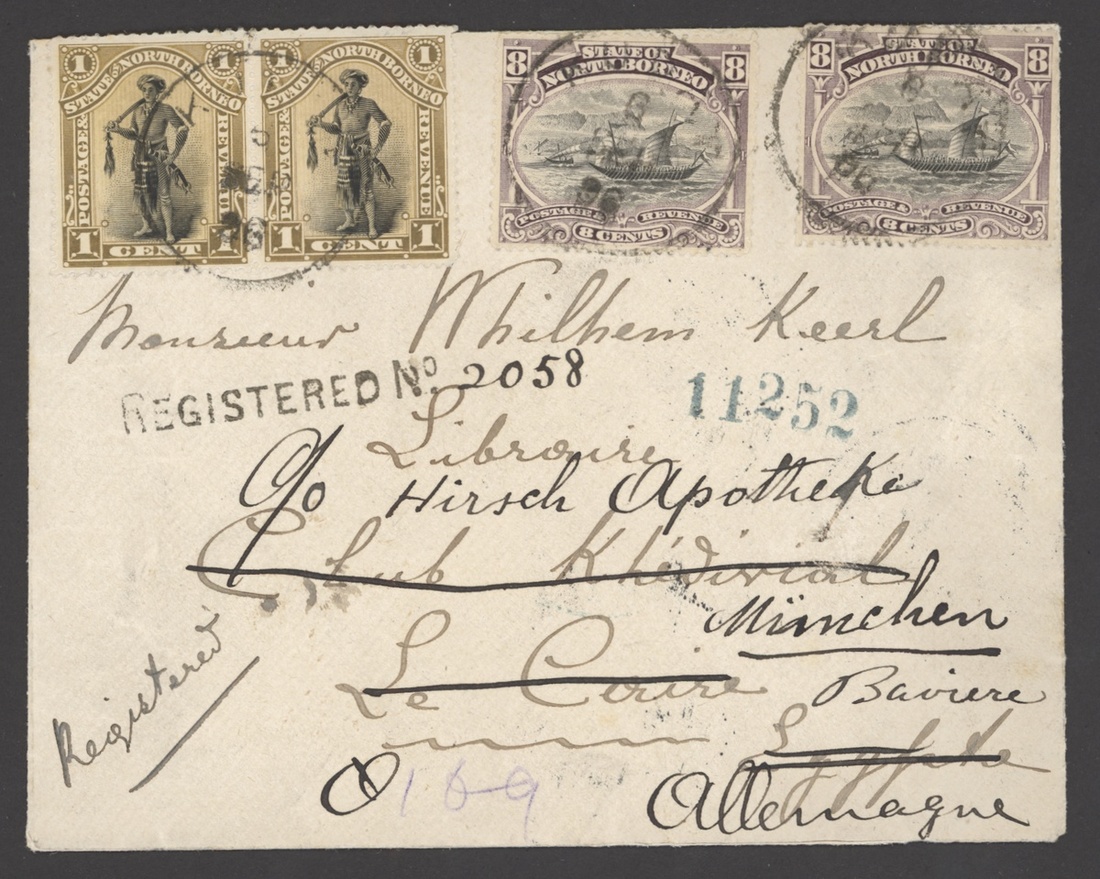 1 STATE OF NORTH BORNEO 1
POSTAGE & REVENUE
1 CENT 1
1 STATE OF NORTH BORNEO 1
POSTAGE & REVENUE
1 CENT 1
8 STATE OF 8
NORTH BORNEO
POSTAGE & REVENUE
8 CENTS
8 STATE OF 8
NORTH BORNEO
POSTAGE & REVENUE
8 CENTS
Monsieur Whilhem Keerl
REGISTERED No. 2058
11252
Libraire
c/o Hirsch Apotheke
Club Khédivial
München
Le Caire
Baviere
Registered
Egypte
169
Allemagne